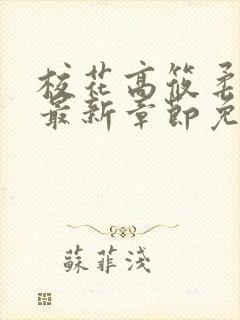 校花高筱柔
最新章節免
蘇菲淺